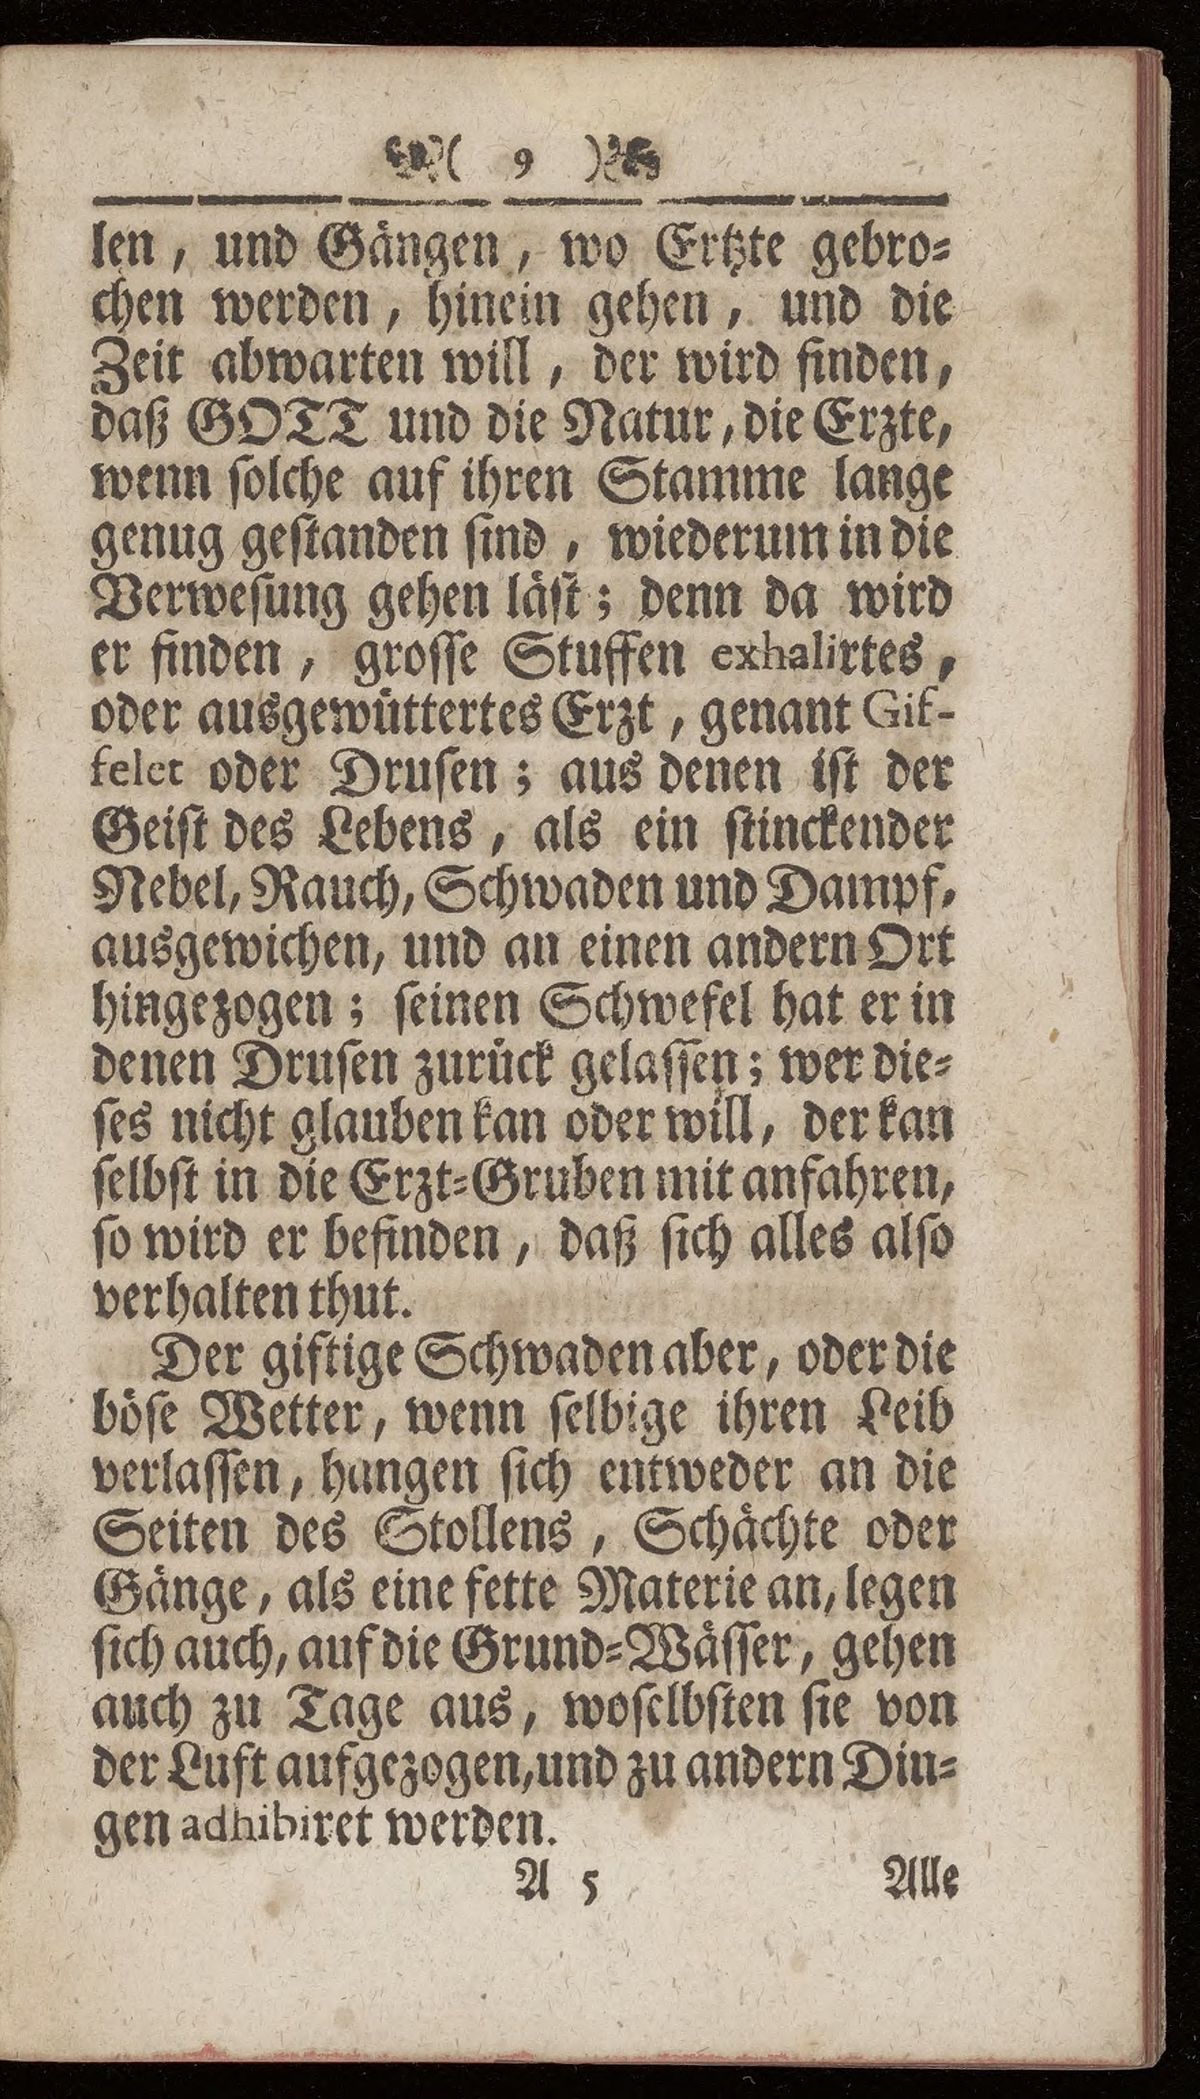 ( 9 )
len, und Gängen, wo Ertzte gebro-
chen werden, hinein gehen, und die
Zeit abwarten will, der wird finden,
daß GOTT und die Natur, die Erzte,
wenn solche auf ihren Stamme lange
genug gestanden sind, wiederum in die
Verwesung gehen läst; denn da wird
er finden, grosse Stuffen exhalirtes,
oder ausgewüttertes Erzt, genant Gif-
felet oder Drusen; aus denen ist der
Geist des Lebens, als ein stinckender
Nebel, Rauch, Schwaden und Dampf,
ausgewichen, und an einen andern Ort
hingezogen; seinen Schwefel hat er in
denen Drusen zurück gelassen; wer die-
ses nicht glauben kan oder will, der kan
selbst in die Erzt-Gruben mit anfahren,
so wird er befinden, daß sich alles also
verhalten thut.
Der giftige Schwaden aber, oder die
böse Wetter, wenn selbige ihren Leib
verlassen, hangen sich entweder an die
Seiten des Stollens, Schächte oder
Gänge, als eine fette Materie an, legen
sich auch, auf die Grund-Wässer, gehen
auch zu Tage aus, woselbsten sie von
der Luft aufgezogen, und zu andern Din-
gen adhibiret werden.
A 5 Alle